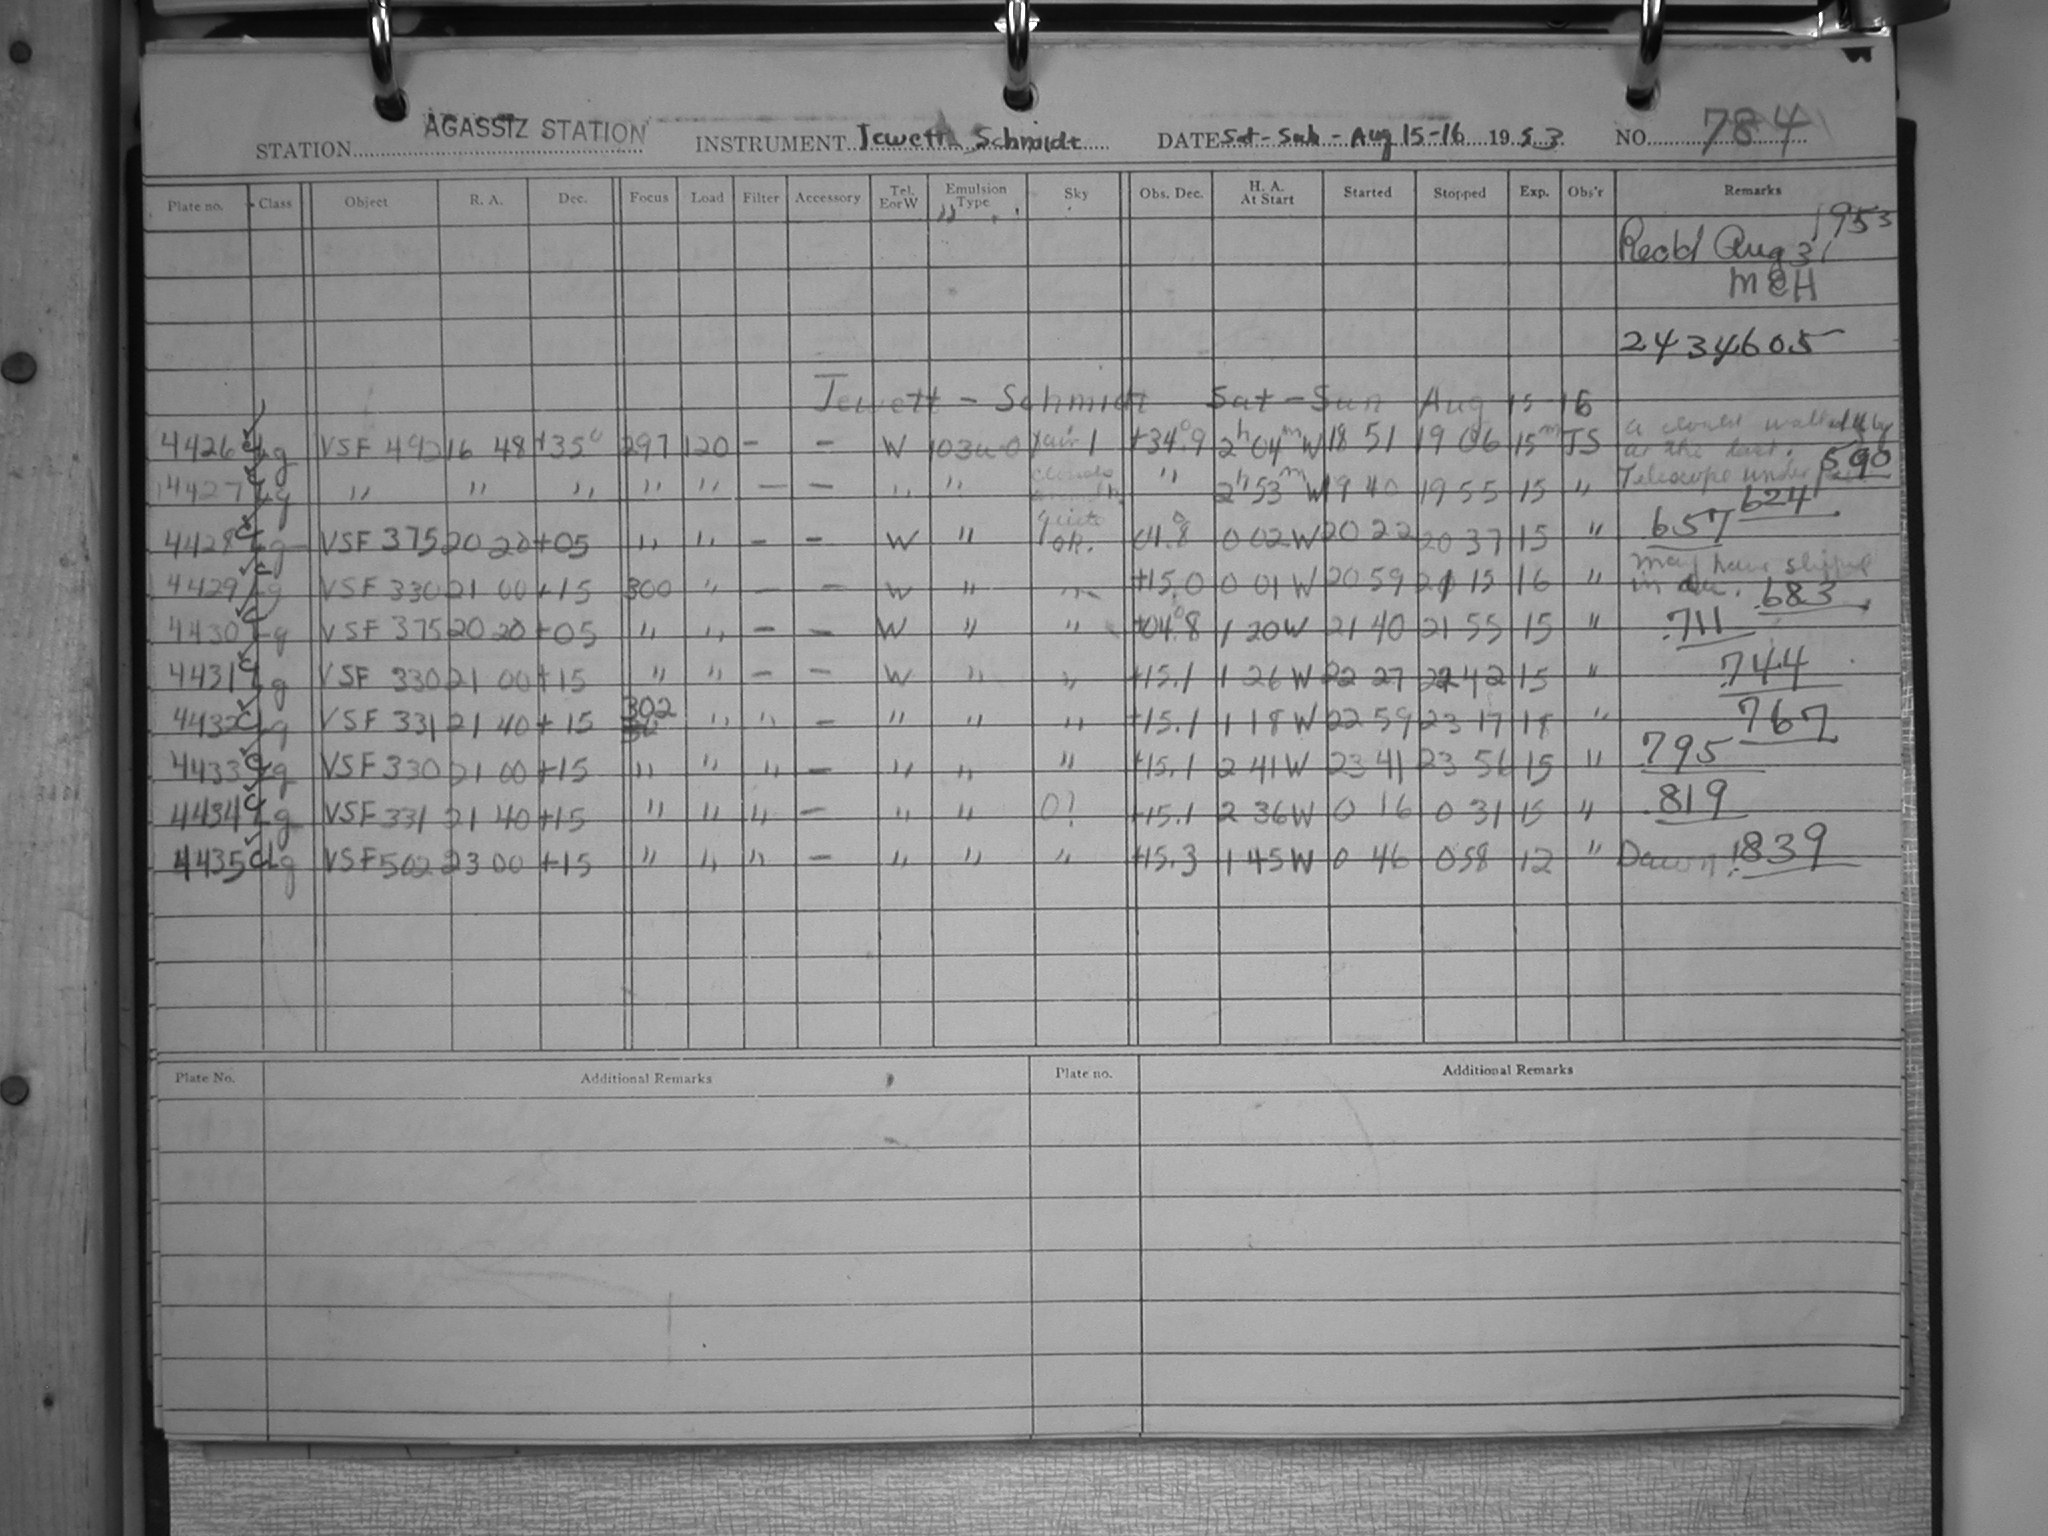 STATION AGASSIZ STATION INSTRUMENT Jewett Schmidt DATE Sat-Sun - Aug 15-16 1953 NO. 784
Plate no. Class Object R. A. Dec. Focus Load Filter Accessory Tel. E or W Emulsion Type Sky Obs. Dec. H. A. At Start Started Stopped Exp. Obs'r Remarks
1953
Recd Aug 31
MEH
2434605
Jewett - Schmidt Sat-Sun Aug 15-16
4426 g VSF 492 16 48 +35° 297 120 - - W 103a-0 +34°.9 2h 04m W 18 51 19 06 15m JS a at the .590
4427 g " " " " " - - " " clouds " 2h 53m W 19 40 19 55 15 " Telescope under .624
4428 g VSF 375 20 20 +05 " " - - W " quite OK. 04°.8 0 02 W 20 22 20 37 15 " .657
4429 g VSF 330 21 00 +15 300 " - - W " " +15.0 0 01 W 20 59 21 15 16 " may have slipped in .683
4430 g VSF 375 20 20 +05 " " - - W " " +04°.8 1 20 W 21 40 21 55 15 " .711
4431 g VSF 330 21 00 +15 " " - - W " " +15.1 1 26 W 22 27 22 42 15 " .744
4432 g VSF 331 21 40 +15 302 " " - " " " +15.1 1 18 W 22 59 23 17 18 " .767
4433 g VSF 330 21 00 +15 " " " - " " " +15.1 2 41 W 23 41 23 56 15 " .795
4434 g VSF 331 21 40 +15 " " " - " " 0? +15.1 2 36 W 0 16 0 31 15 " .819
4435 g VSF 502 23 00 +15 " " " - " " " +15.3 1 45 W 0 46 0 58 12 " Dawn! .839
Plate No. Additional Remarks Plate no. Additional Remarks